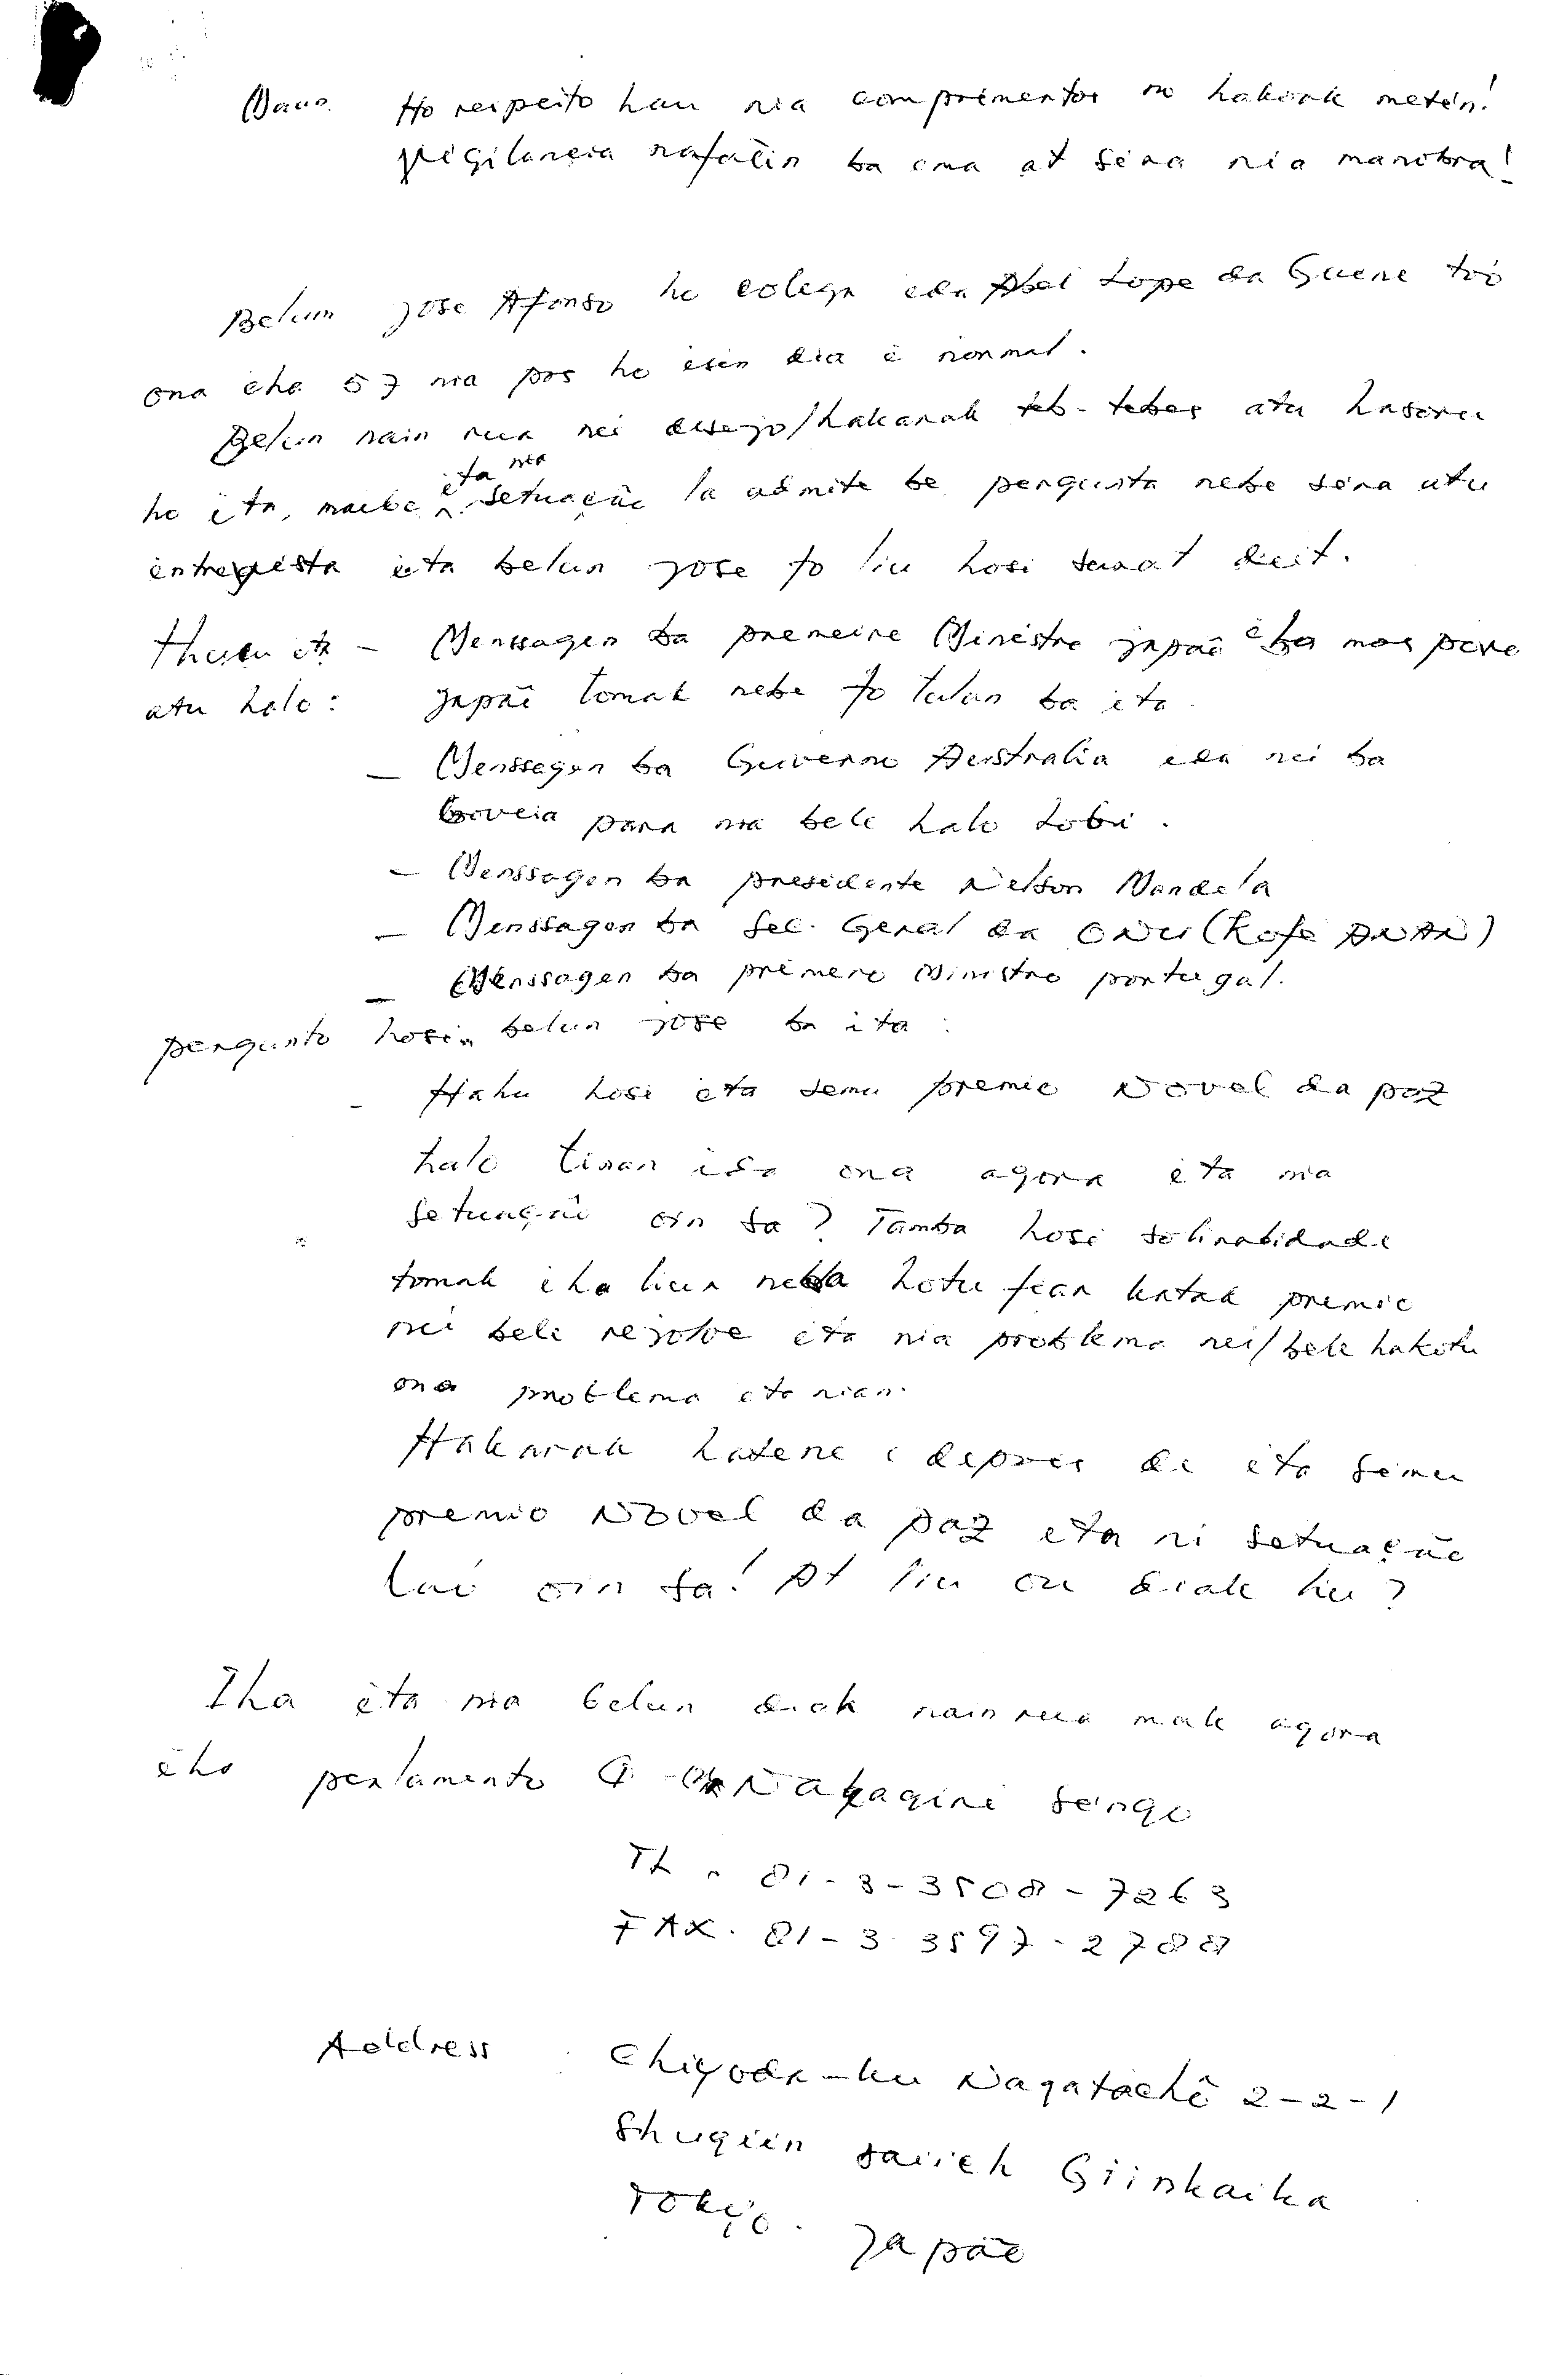 Maun. Ho respeito hau nia comprimentos no hakoak metin!
Vigilancia nafatin ba ema at sira nia manobra!
Belun Jose Afonso ho colega ida Abel Lope da Guere to'o
ona iha 57 nia pos ho isin dia e normal.
Belun nain rua nei desejo/hakarak teb-tebes atu hasoru
ho ita, maibe ita nia setuação la admite be pergunta nebe sira atu
entrevista ita belun Jose fo liu hosi surat deit.
Husu ita – Menssagen ba premeiro Ministro Japão iha mos povo
atu halo: Japão tomak nebe fo tulun ba ita.
– Menssagen ba Guverno Australia ida nei ba
Goveia para nia bele halo lobi.
– Menssagen ba presidente Nelson Mandela
– Menssagen ba Sec. Geral da ONU (Kofe ANAN)
– Menssagen ba primero Ministro portugal.
pergunto hosi belun Jose ba ita:
- Hahu hosi ita simu premio Novel da paz
halo tinan ida ona agora ita nia
setuação oin sa? Tamba hosi solinabidade
tomak iha liur neba hotu fiar katak premio
nei bele resolve ita nia problema nei/bele hakotu
ona problema ita nian.
Hakarak hatene depois de ita simu
premio Novel da paz ita ni setuação
lao oin sa! At liu ou diak liu?
Iha ita nia belun diak nain rua mak agora
iha parlamento Nakagiri Sengo
TL. 81-3-3508-7263
FAX. 81-3-3597-2788
Address Chiyoda-ku Nagatachô 2-2-1
Shugiin Giinkaika
Tokyo. Japão